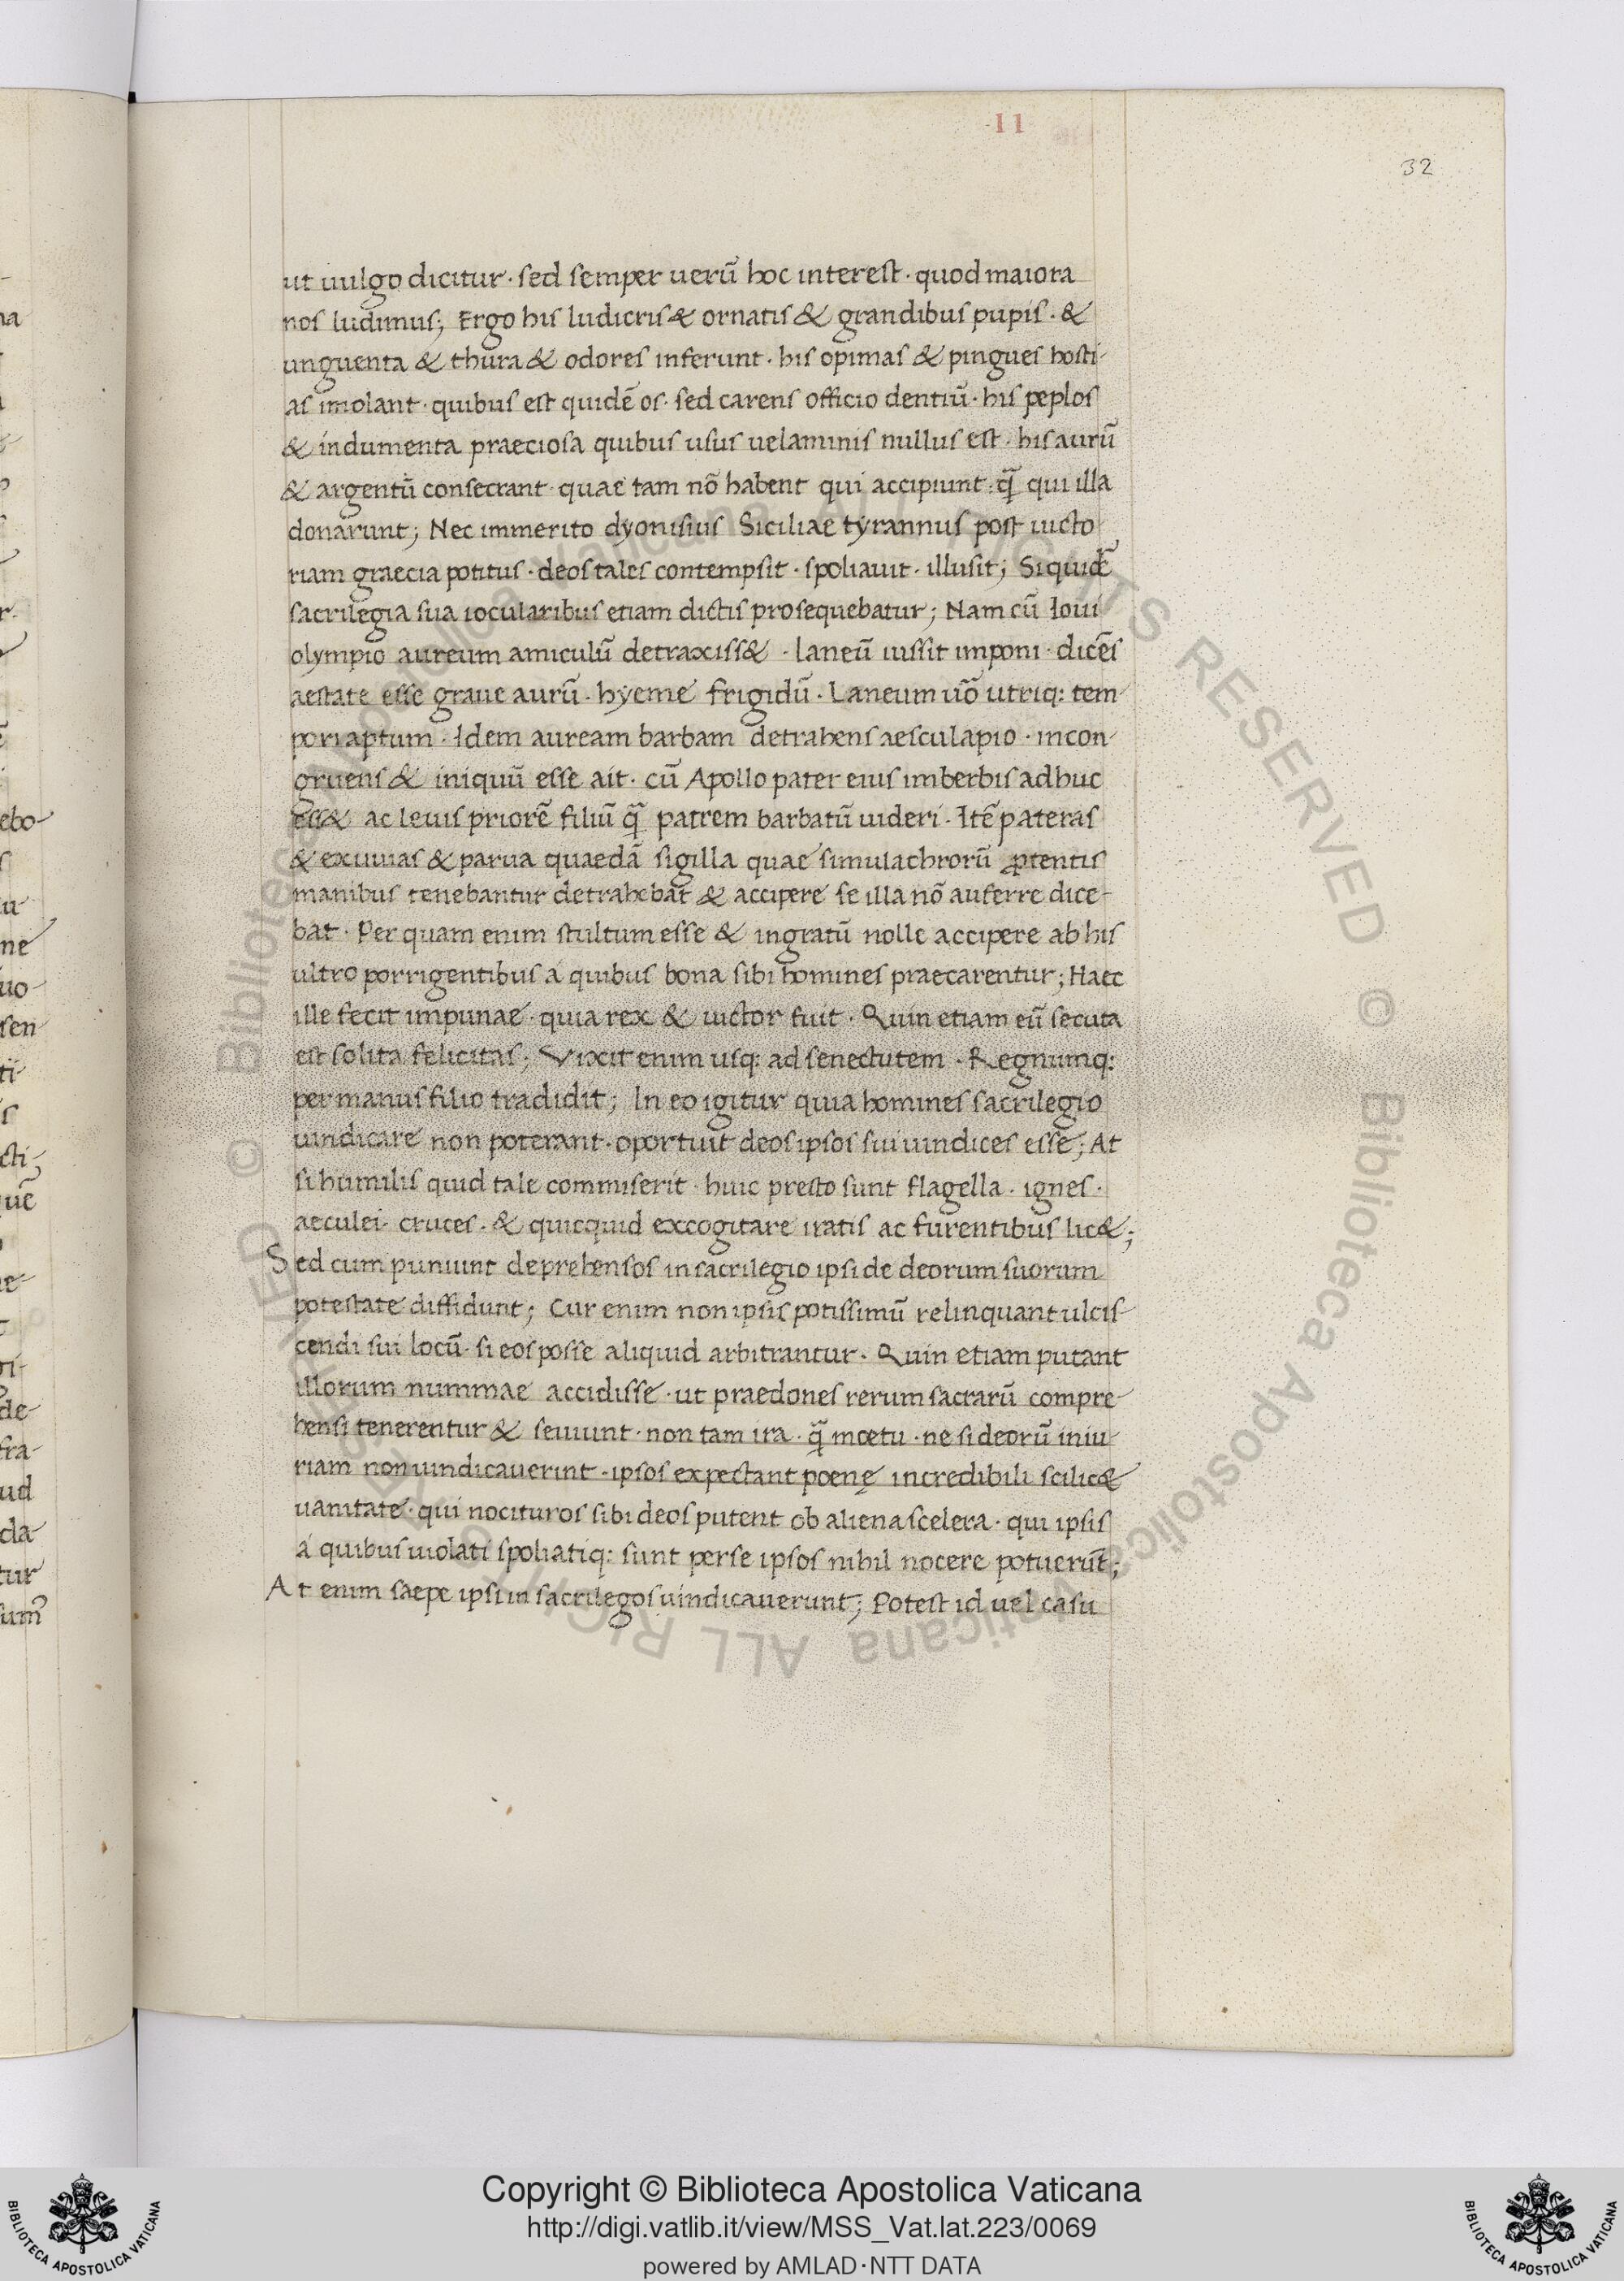 II
32
ut uulgo dicitur · sed semper uerū hoc interest · quod maiora
nos ludimus; Ergo his ludicris & ornatis & grandibus pupis · &
unguenta & thura & odores inferunt · his opimas & pingues hosti-
as imolant · quibus est quidē os · sed carens officio dentiū · his peplos
& indumenta praeciosa quibus usus uelaminis nullus est · his aurū
& argentū consecrant · quae tam nō habent qui accipiunt · q̄ qui illa
donarunt; Nec immerito dyonisius Siciliae tyrannus post uicto
riam graecia potitus · deos tales contempsit · spoliauit · illusit; Siquidē
sacrilegia sua iocularibus etiam dictis prosequebatur; Nam cū Ioui
olympio aureum amiculū detraxiss& · laneū iussit imponi · dicēs
aestate esse graue aurū · hyeme frigidū · Laneum uō utriq: tem-
pori aptum · Idem auream barbam detrahens aesculapio · incon-
gruens & iniquū esse ait · cū Apollo pater eius imberbis adhuc
ess& ac leuis priorē filiū q̄ patrem barbatū uideri · Itē pateras
& exuuias & parua quaedā sigilla quae simulachrorū ꝓtentis
manibus tenebantur detrahebat & accipere se illa nō auferre dice-
bat · Per quam enim stultum esse & ingratū nolle accipere ab his
ultro porrigentibus a quibus bona sibi homines praecarentur; Haec
ille fecit impunae · quia rex & uictor fuit · Quin etiam eū secuta
est solita felicitas; Vixit enim usq: ad senectutem · Regnumq:
per manus filio tradidit; In eo igitur quia homines sacrilegio
uindicare non poterant · oportuit deos ipsos sui uindices esse; At
si humilis quid tale commiserit · huic presto sunt flagella · ignes ·
aeculei · cruces · & quicquid excogitare iratis ac furentibus lic&;
Sed cum puniunt deprehensos in sacrilegio ipsi de deorum suorum
potestate diffidunt; Cur enim non ipsis potissimū relinquant ulcis-
cendi sui locū · si eos posse aliquid arbitrantur · Quin etiam putant
illorum nummae accidisse · ut praedones rerum sacrarū compre-
hensi tenerentur & seuiunt · non tam ira · q̄ moetu · ne si deorū iniu-
riam non uindicauerint · ipsos expectant poenę incredibili scilic&
uanitate · qui nocituros sibi deos putent ob aliena scelera · qui ipsis
a quibus uiolati spoliatiq: sunt per se ipsos nihil nocere potuerūt;
At enim saepe ipsi in sacrilegos uindicauerunt; Potest id uel casu
Copyright © Biblioteca Apostolica Vaticana
http://digi.vatlib.it/view/MSS_Vat.lat.223/0069
powered by AMLAD·NTT DATA